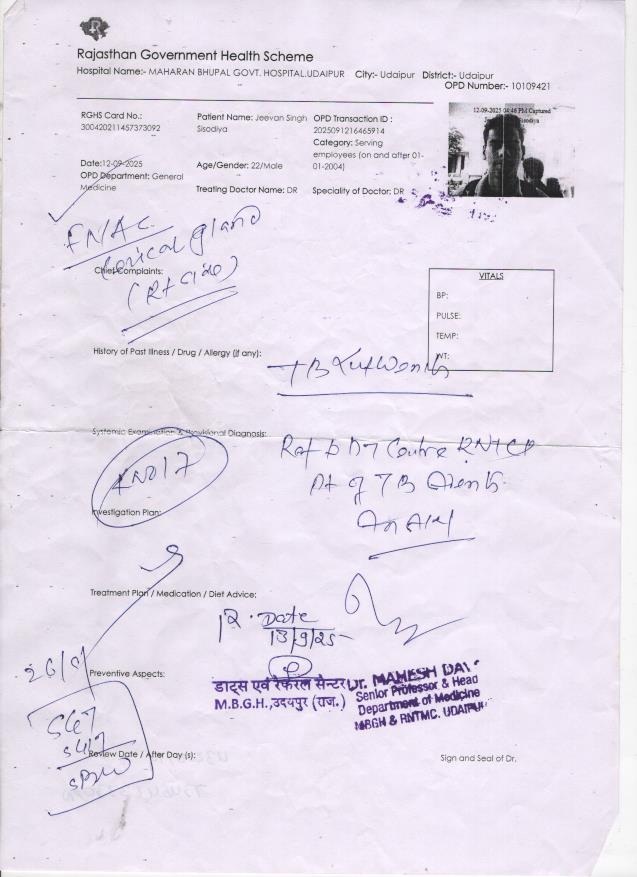 R
Rajasthan Government Health Scheme
Hospital Name:- MAHARAN BHUPAL GOVT. HOSPITAL,UDAIPUR City:- Udaipur District:- Udaipur
OPD Number:- 10109421
RGHS Card No.:
300420211457373092
Patient Name: Jeevan Singh
Sisodiya
OPD Transaction ID :
2025091216465914
Category: Serving
employees (on and after 01-
01-2004)
12-09-2025 04:46 PM Captured
Sisodiya
Date:12-09-2025
OPD Department: General
Medicine
Age/Gender: 22/Male
Treating Doctor Name: DR
Speciality of Doctor: DR
FNAC
gland
(Rt side)
Chief Complaints:
VITALS
BP:
PULSE:
TEMP:
WT:
History of Past Illness / Drug / Allergy (if any):
TB
Systemic Examination & Provisional Diagnosis:
Ref to Centre RNTCP
Pt of TB
Investigation Plan:
Treatment Plan / Medication / Diet Advice:
Date
13/9/25
डाट्स एवं रेफरल सेन्टर
M.B.G.H.,उदयपुर (राज.)
Dr. MAHESH DAV
Senior Professor & Head
Department of Medicine
MBGH & RNTMC. UDAIPUR
Preventive Aspects:
Review Date / After Day (s):
Sign and Seal of Dr.